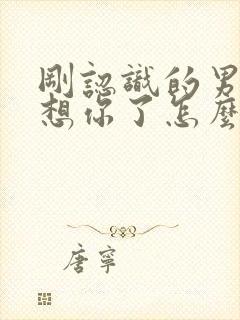 剛認識的男
想你了怎麼
唐寧